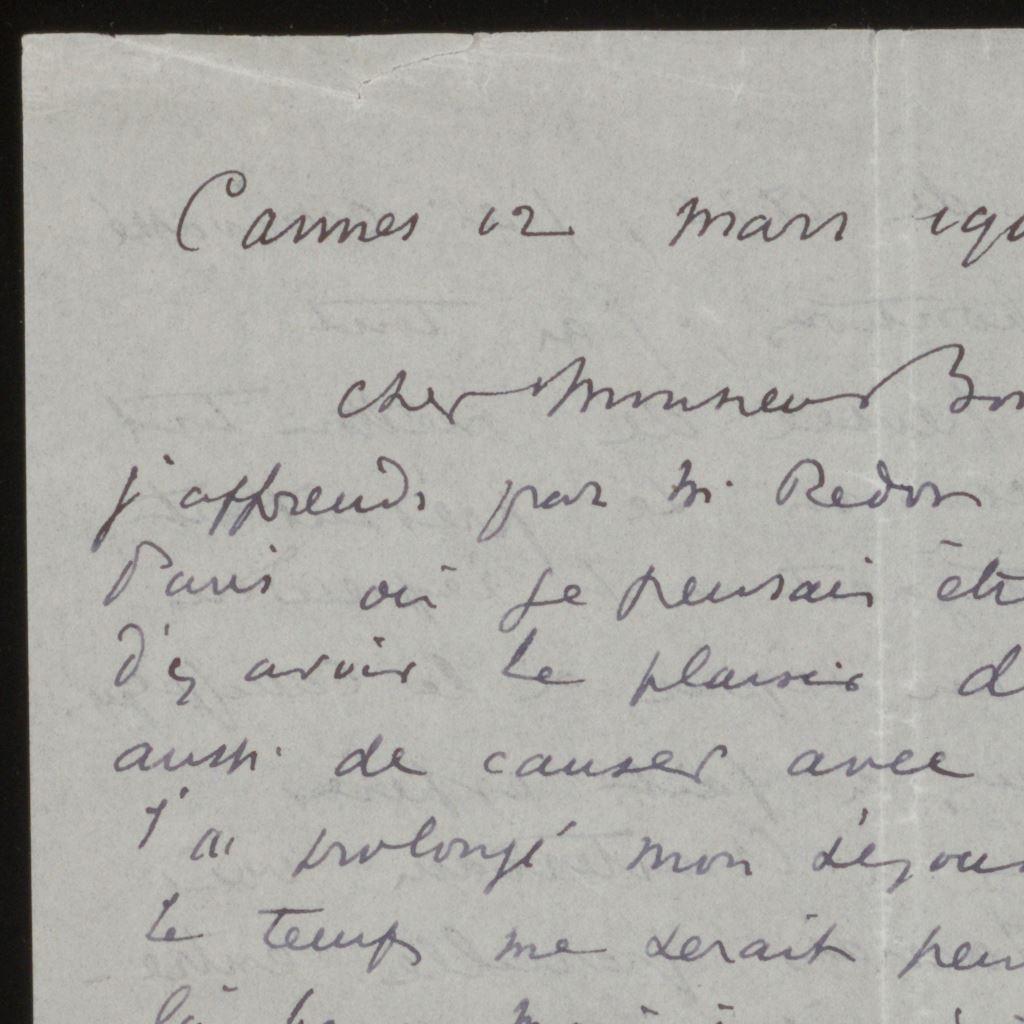 Cannes 12 mars 190
cher Monsieur Bon
j'apprends par M. Redon
Paris où je pensais êt
d'y avoir le plaisir d
aussi de causer avec
j'ai prolongé mon séjour
Le temps me serait peu